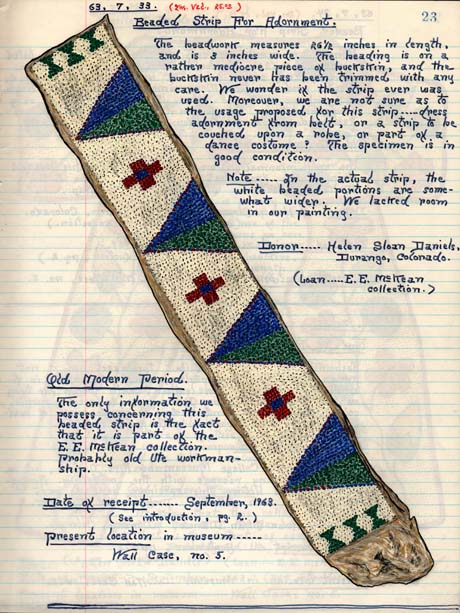 63, 7, 33. (Rm. Vei, Es.2)
23
Beaded Strip For Adornment.
The beadwork measures 26½ inches in length,
and is 3 inches wide. The beading is on a
rather mediocre piece of buckskin, and the
buckskin never has been trimmed with any
care. We wonder if the strip ever was
used. Moreover, we are not sure as to
the usage proposed for this strip.....dress
adornment from belt, or a strip to be
couched upon a robe, or part of a
dance costume? The specimen is in
good condition.
Note ..... In the actual strip, the
white beaded portions are some-
what wider. We lacked room
in our painting.
Donor..... Helen Sloan Daniels,
Durango, Colorado.
(Loan.....E.E. McKean
collection.)
Old Modern Period.
The only information we
possess concerning this
beaded strip is the fact
that it is part of the
E.E. McKean collection.
Probably old Ute workman-
ship.
Date of receipt....... September, 1963.
(See introduction, pg. 2..)
Present location in museum ......
Wall Case, no. 5.